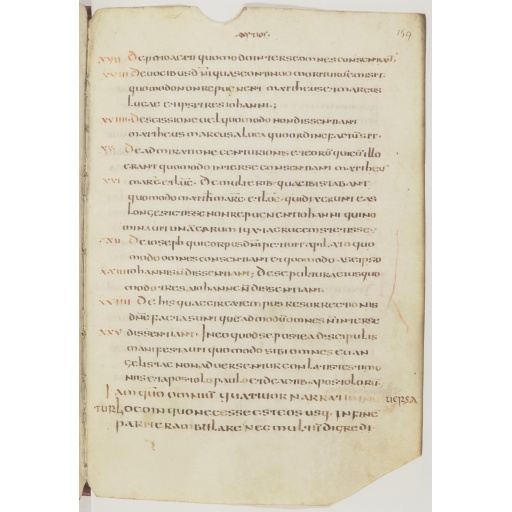 159
XVII De potu aceti quomodo inter se omnes consentiant
XVIII De vocibus dni quas continuo moriturus emisit
quomodo non repugnent mattheus et marcus
lucae et ipsi tres iohanni;
XVIIII De scissione veli quomodo non dissentiant
mattheus marcus a luca quo ordine factum sit
XX De admiratione centurionis et eorum qui cum illo
erant quomodo inter se consentiant mattheus
XXI marc et luc. De mulierib quae ibi stabant
quomodo matth marc et luc. qui dixerunt eas
longe stetisse non repugnent iohanni qui no
minavit unam earum iuxta crucem stetisse
XXII De ioseph qui corpus dni petivit a pilato quo
modo omnes consentiant et quomodo a se ipso
XXIII iohannis n dissentiant; De sepultura eius quo
modo tres a iohanne n dissentiant.
XXIIII De his quae circa tempus resurrectionis
dni facta sunt quem ad modum omnes n inter se
XXV dissentiant. In eo quod se postea discipulis
manifestavit quomodo sibi omnes evan
gelistae non adversentur conlatis testimo
niis et apostolo paulo et de actib apostolorum
Iam quo omnium quattuor narratio versa
tur loco in quo necesse est eos usq. in fine
pariter ambulare nec multum digredi